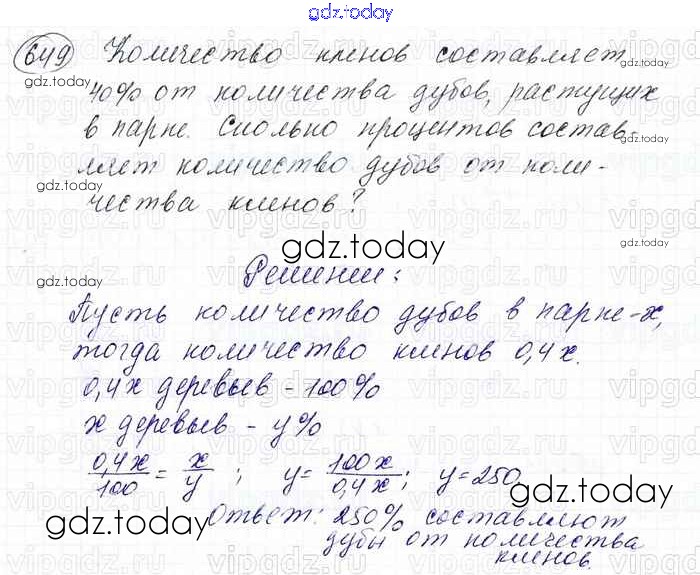 gdz.today
649 Количество кленов составляет
40% от количества дубов, растущих
в парке. Сколько процентов состав-
ляет количество дубов от коли-
чества кленов?
gdz.today
Решении:
Пусть количество дубов в парке-х,
тогда количество кленов 0,4х.
0,4х деревьев - 100%
х деревьев - у%
0,4х/100 = х/у ; у= 100х/0,4х ; у=250
Ответ: 250% составляют
дубы от количества
кленов.
gdz.today
gdz.today
gdz.today
gdz.today
gdz.today
gdz.today
gdz.today